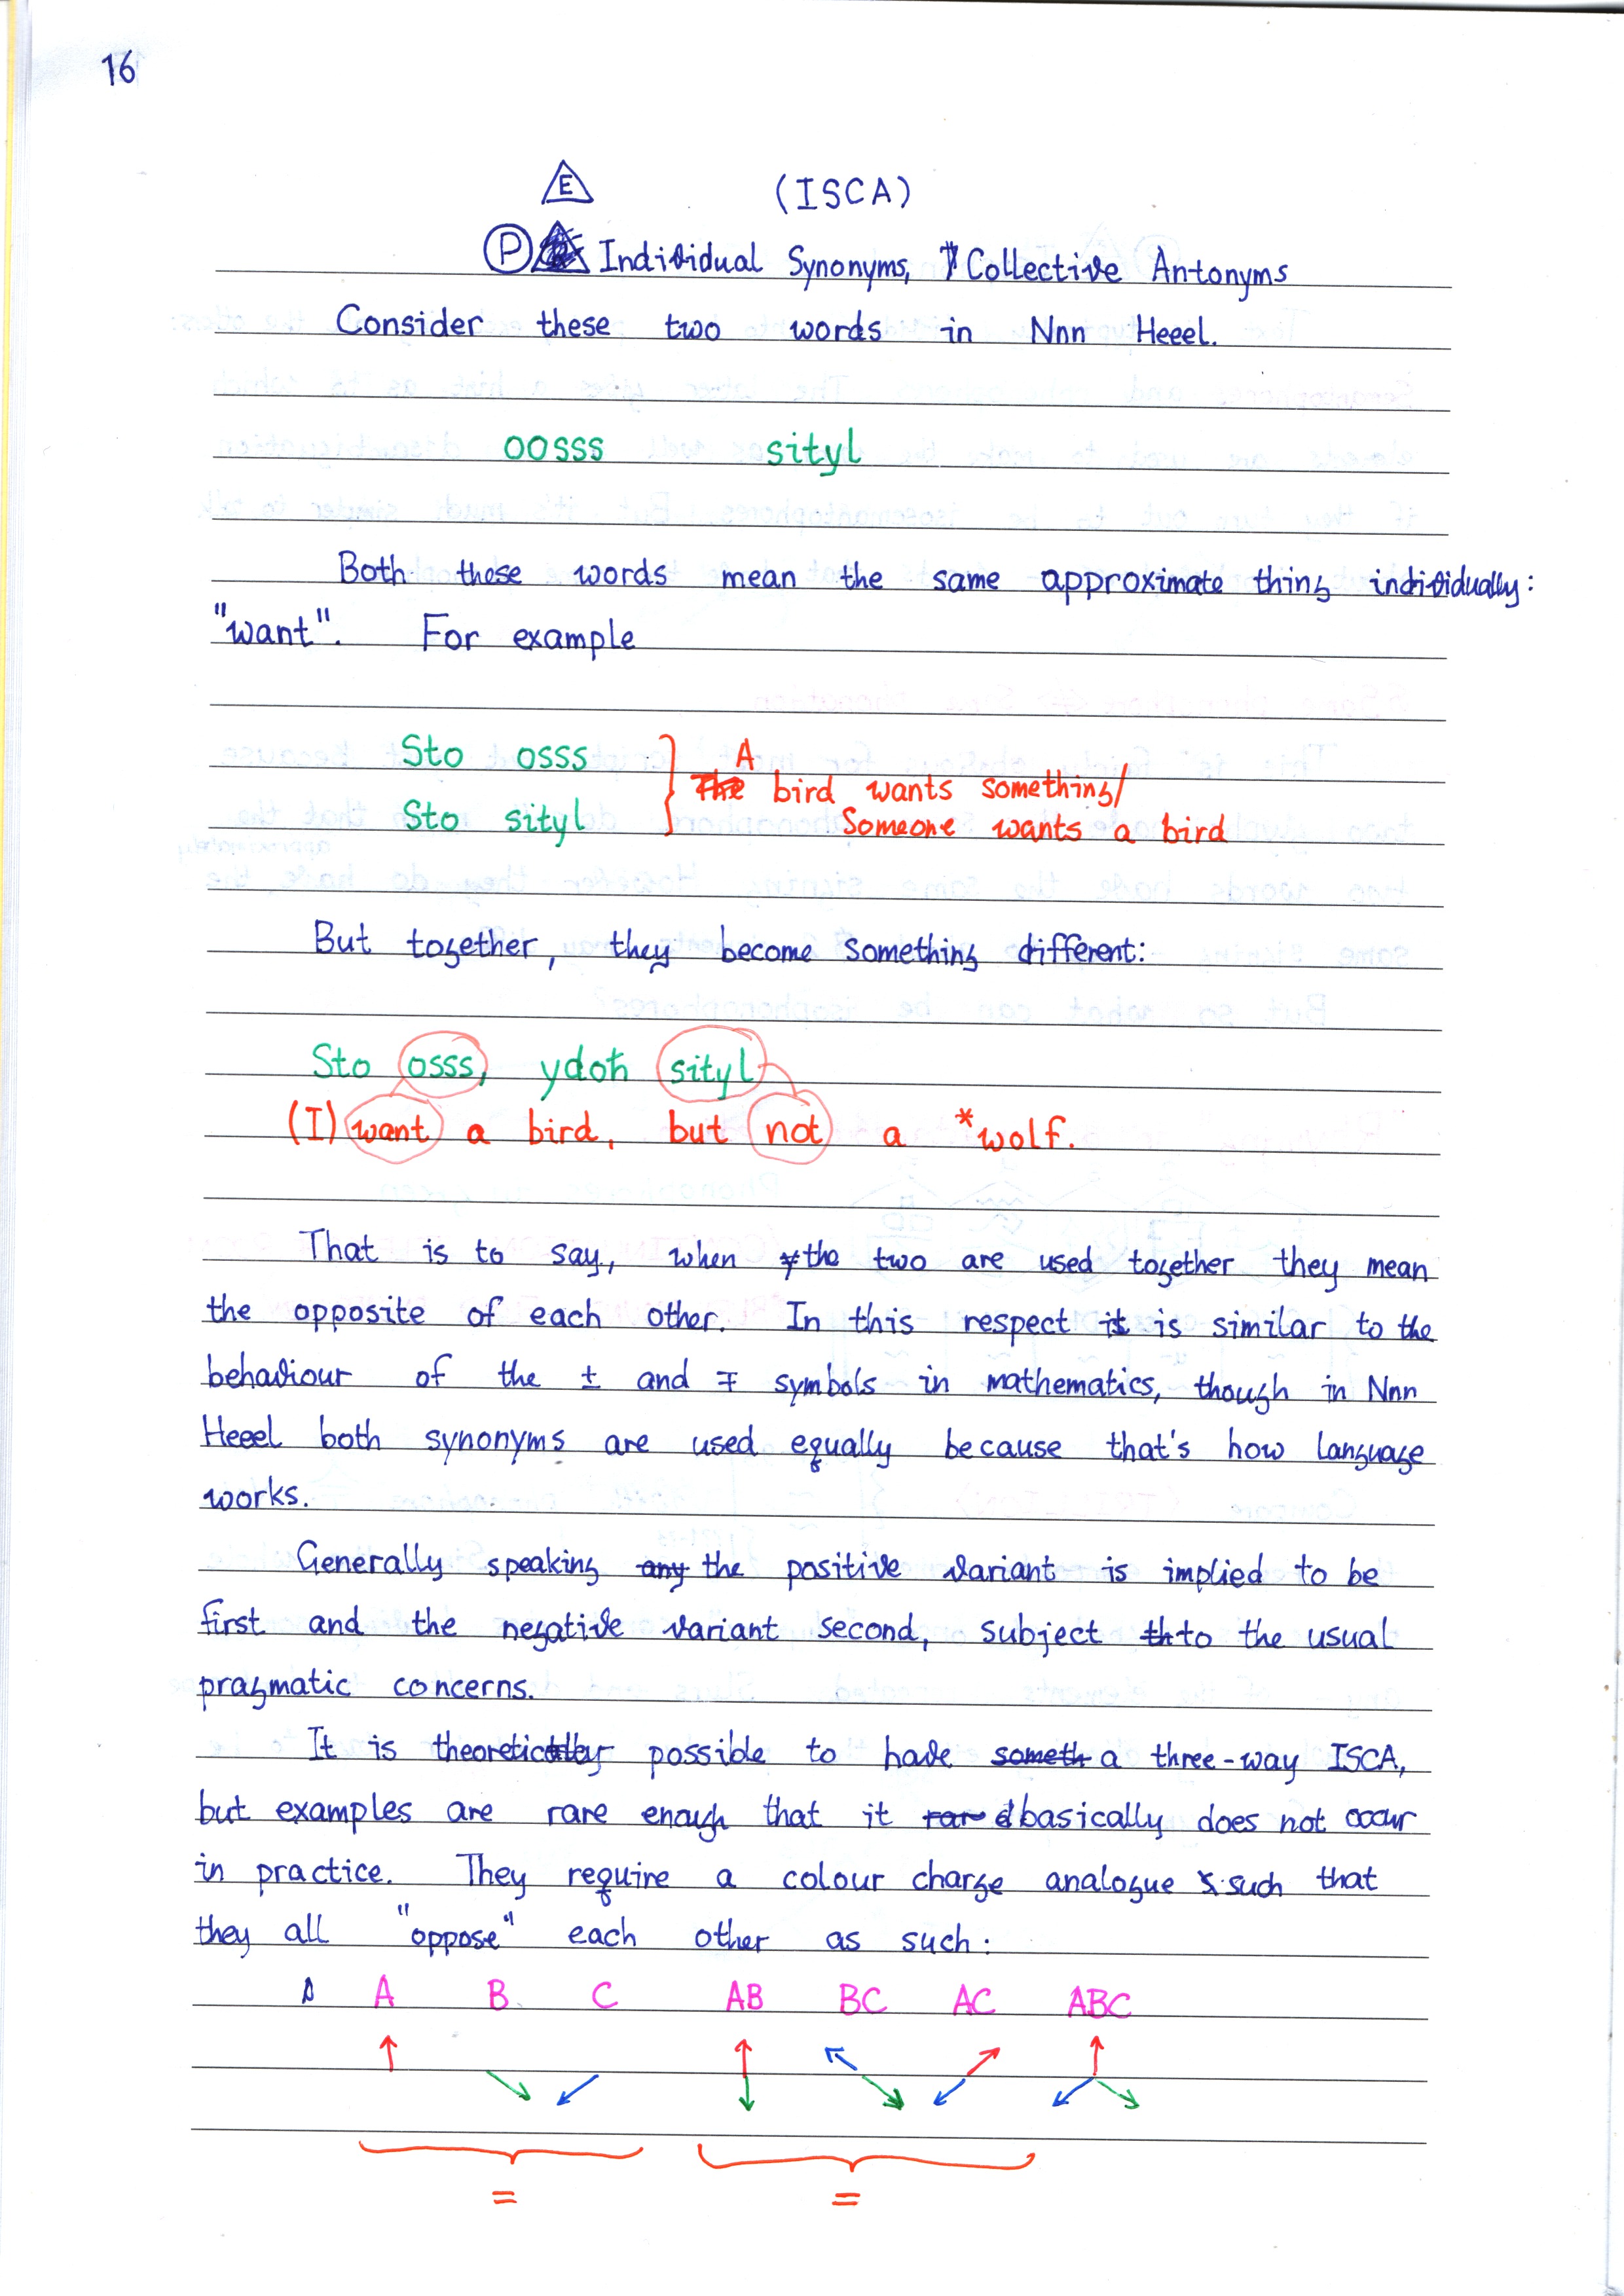 16
E
(ISCA)
P Individual Synonyms, Collective Antonyms
Consider these two words in Nnn Heeel.
oosss sityl
Both these words mean the same approximate thing individually:
"want". For example
Sto osss
A
The bird wants something/
Sto sityl
Someone wants a bird
But together, they become something different:
Sto osss, ydoh sityl
(I) want a bird, but not a *wolf.
That is to say, when the two are used together they mean
the opposite of each other. In this respect it is similar to the
behaviour of the ± and ∓ symbols in mathematics, though in Nnn
Heeel both synonyms are used equally because that's how language
works.
Generally speaking any the positive variant is implied to be
first and the negative variant second, subject th to the usual
pragmatic concerns.
It is theoretically possible to have someth a three-way ISCA,
but examples are rare enough that it rar basically does not occur
in practice. They require a colour charge analogue such that
they all "oppose" each other as such:
A B C AB BC AC ABC
= =